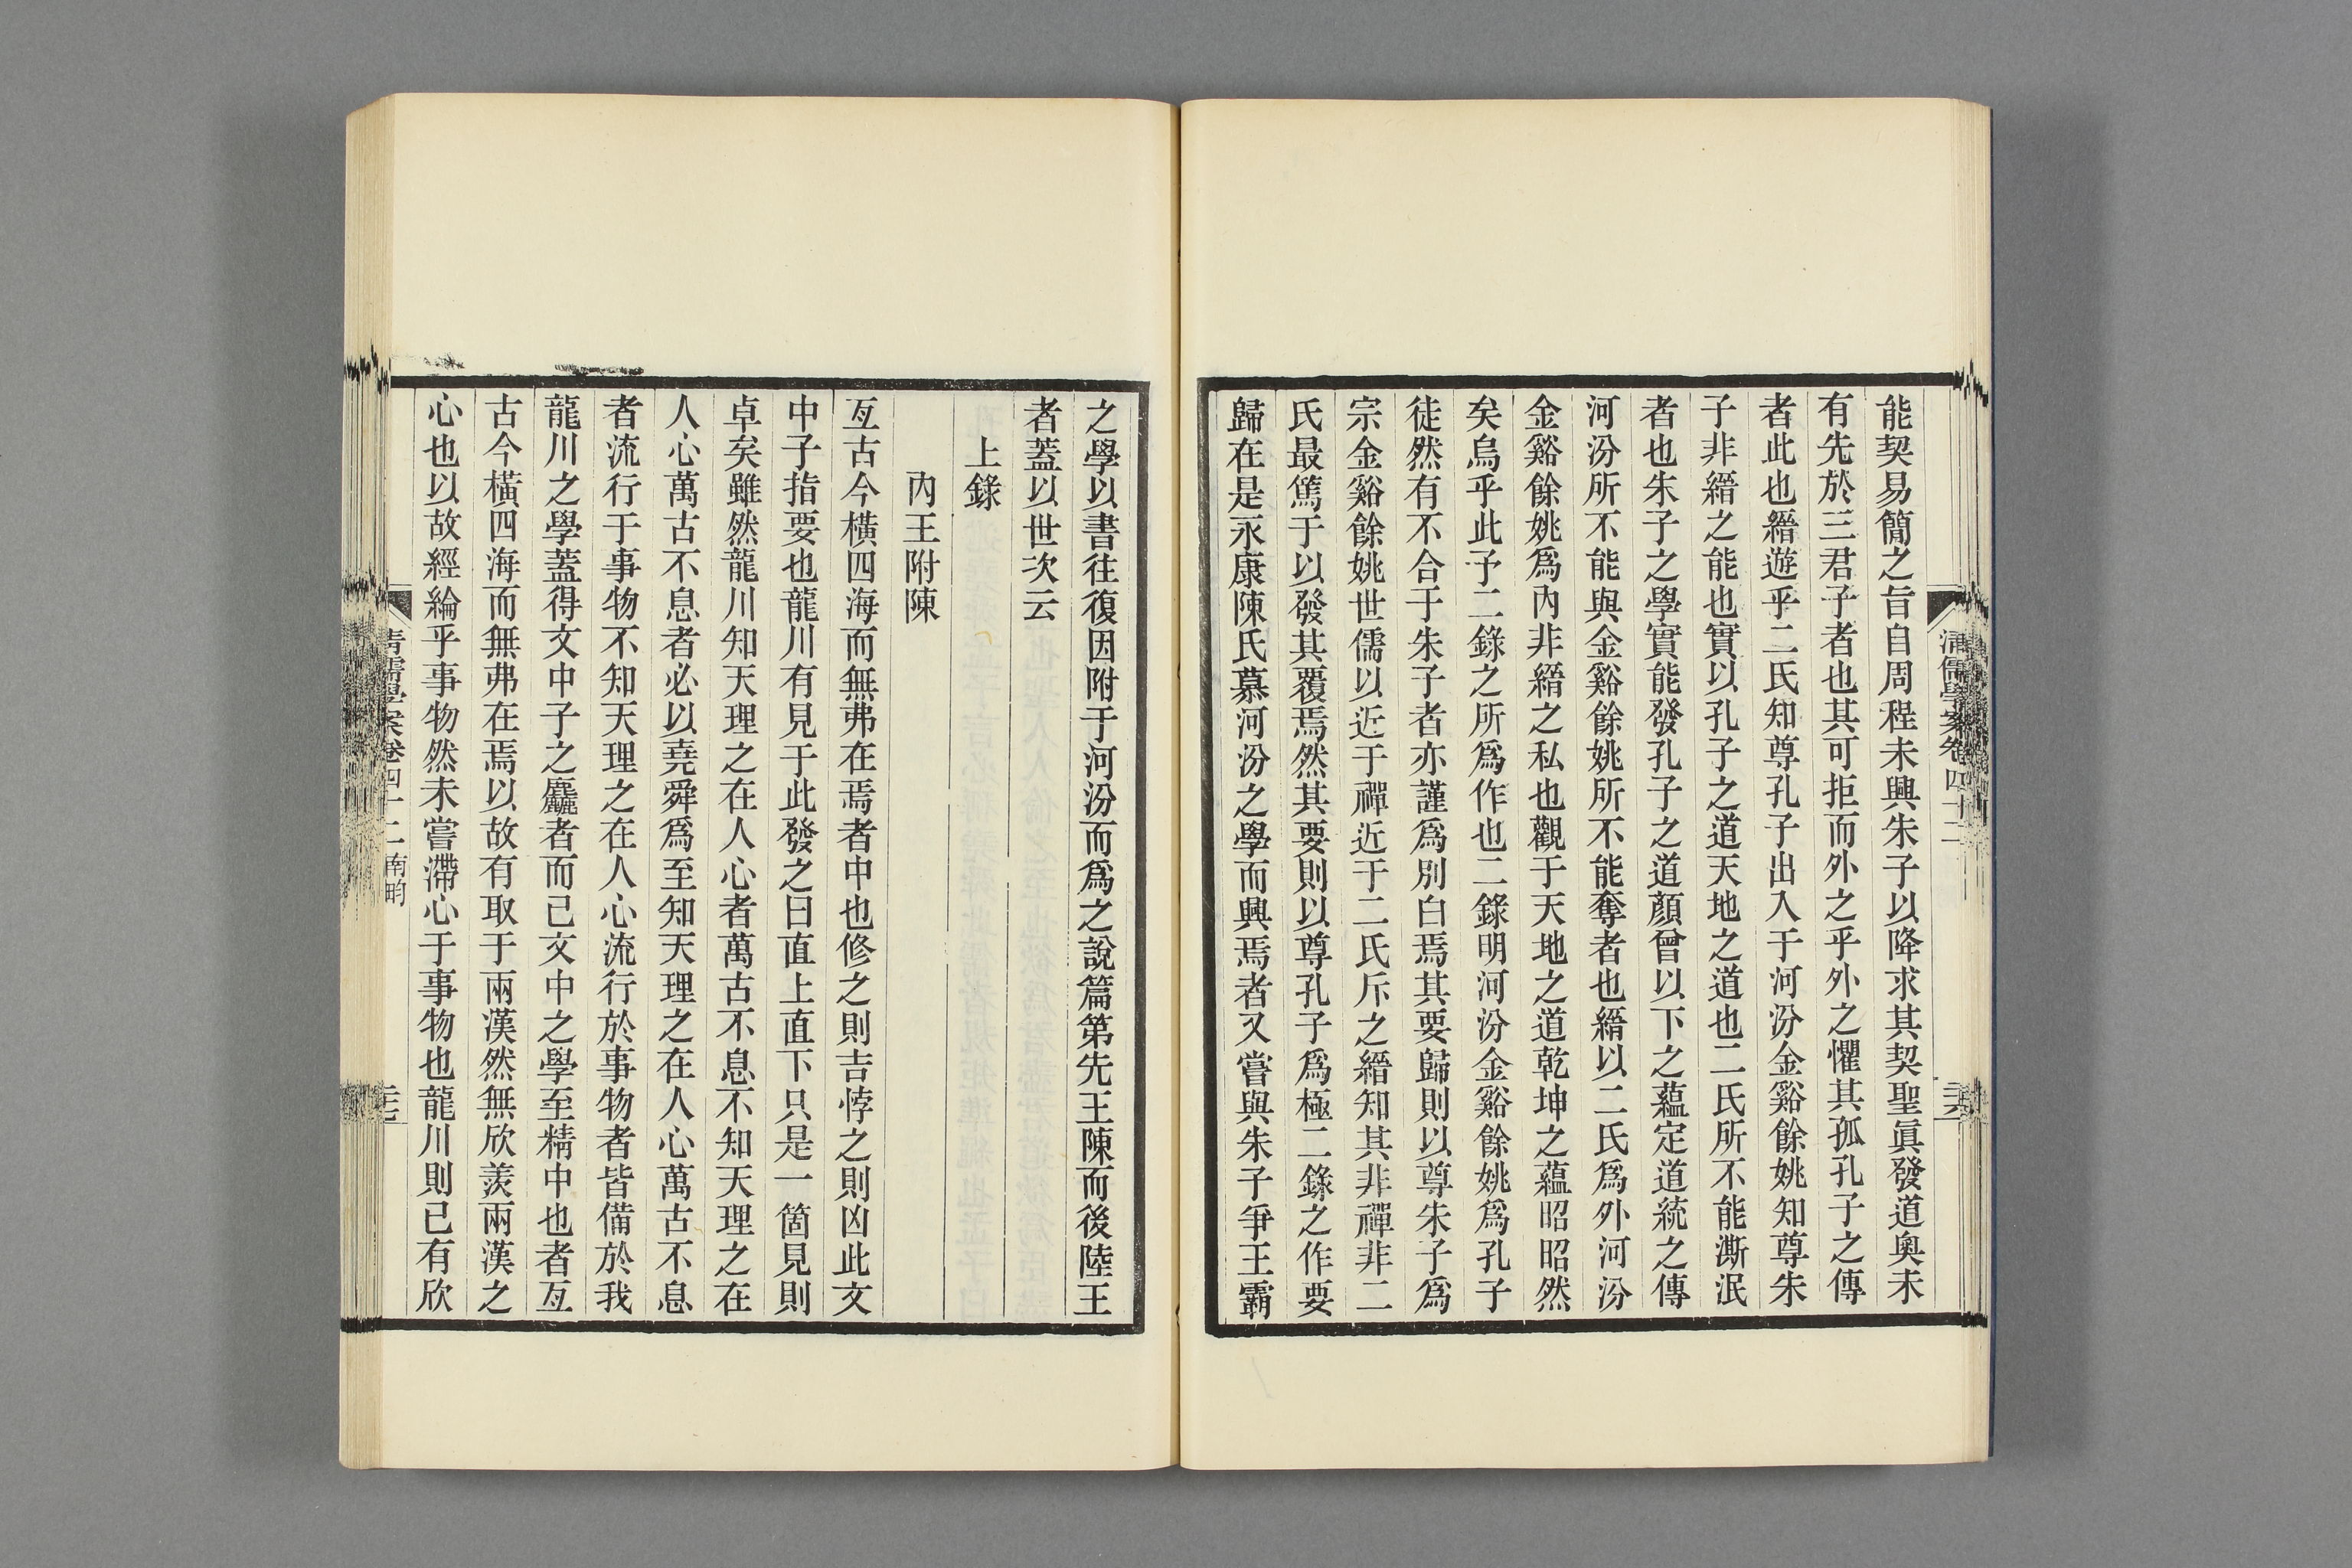 能契易簡之旨自周程未興朱子以降求其契聖眞發道奧未
有先於三君子者也其可拒而外之乎外之懼其孤孔子之傳
者此也縉遊乎二氏知尊孔子出入于河汾金谿餘姚知尊朱
子非縉之能也實以孔子之道天地之道也二氏所不能澌泯
者也朱子之學實能發孔子之道顏曾以下之蘊定道統之傳
河汾所不能與金谿餘姚所不能奪者也縉以二氏爲外河汾
金谿餘姚爲內非縉之私也觀于天地之道乾坤之蘊昭昭然
矣烏乎此予二錄之所爲作也二錄明河汾金谿餘姚爲孔子
徒然有不合于朱子者亦謹爲別白焉其要歸則以尊朱子爲
宗金谿餘姚世儒以近于禪近于二氏斥之縉知其非禪非二
氏最篤于以發其覆焉然其要則以尊孔子爲極二錄之作要
歸在是永康陳氏慕河汾之學而興焉者又嘗與朱子爭王霸
清儒學案卷四十二
之學以書往復因附于河汾而爲之說篇第先王陳而後陸王
者蓋以世次云
上錄
內王附陳
亙古今橫四海而無弗在焉者中也修之則吉悖之則凶此文
中子指要也龍川有見于此發之曰直上直下只是一箇見則
卓矣雖然龍川知天理之在人心者萬古不息不知天理之在
人心萬古不息者必以堯舜爲至知天理之在人心萬古不息
者流行于事物不知天理之在人心流行於事物者皆備於我
龍川之學蓋得文中子之麤者而已文中之學至精中也者亙
古今橫四海而無弗在焉以故有取于兩漢然無欣羨兩漢之
心也以故經綸乎事物然未嘗滯心于事物也龍川則已有欣
清儒學案卷四十二 南畇